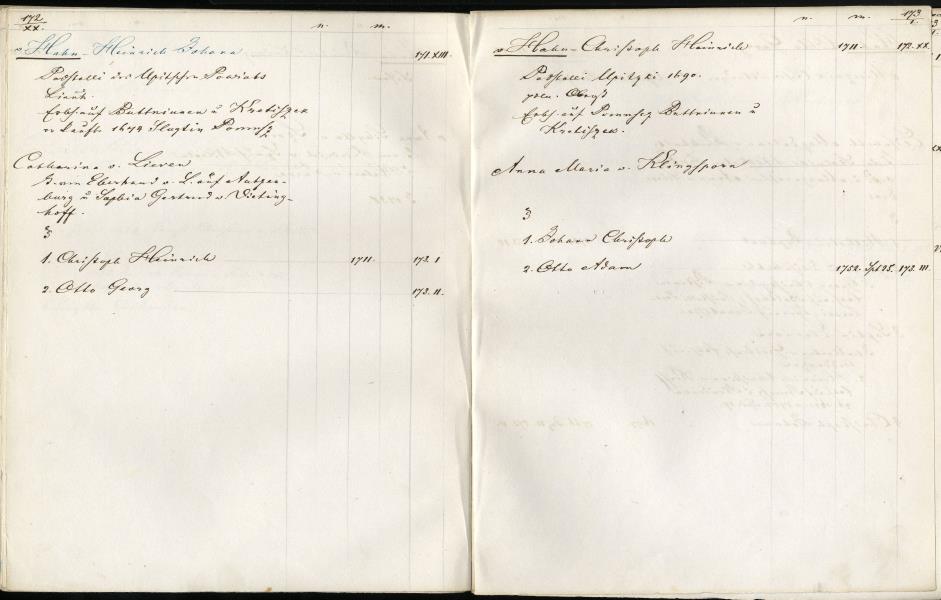 172
XX.
n. m.
v. Hahn - Heinrich Johann 171.XIII.
Posstelli des Upitschen Powiats
Lieut.
Erbh. auf Buttninnen u Kretiszek
verkaufte 1674
Catharina v. Lieven
T. von Eberhard v. L. auf
burg u Sophia Gertrud v Vieting-
hoff.
3
1. Christoph Heinrich 1711. 173. I
2. Otto Georg 173. II.
n. m. 173
I.
v. Hahn - Christoph Heinrich 1711. 172. XX.
Posstelli Upitzki 1690.
poln. Obrist
Erbh. auf Pomusz Buttninnen u
Kretiszek.
Anna Maria v. Klingsporn
3
1. Johann Christoph
2. Otto Adam 1752. Spt 25. 173. III.